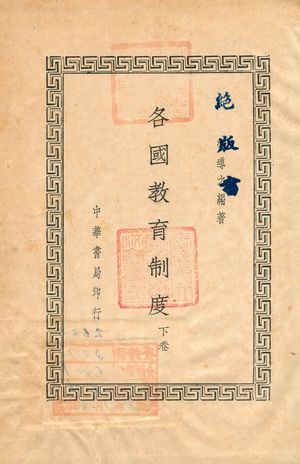 絕版書
導之編著
各國教育制度 下卷
中華書局印行